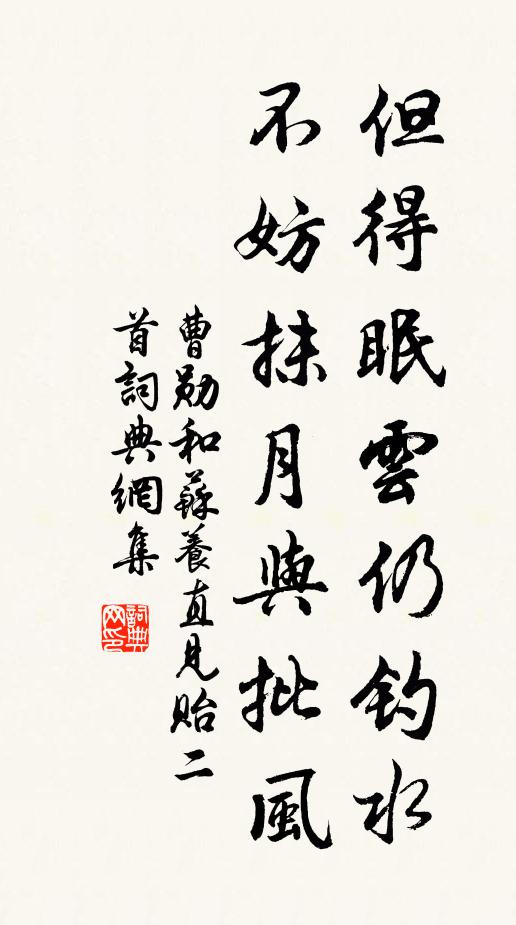 但得眠雲仍釣水
不妨抹月與批風
曹勛和蘇養直見貽二
首詞典網集
詞典网印